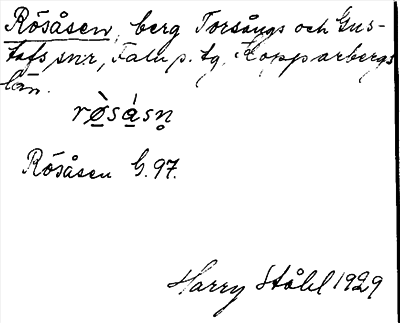 Rösåsen, berg Torsångs och Gus-
tafs snr, Falu p. tg. Kopparbergs
län.
rø̀sásn̥
Rösåsen G. 97.
Harry Ståhl 1929